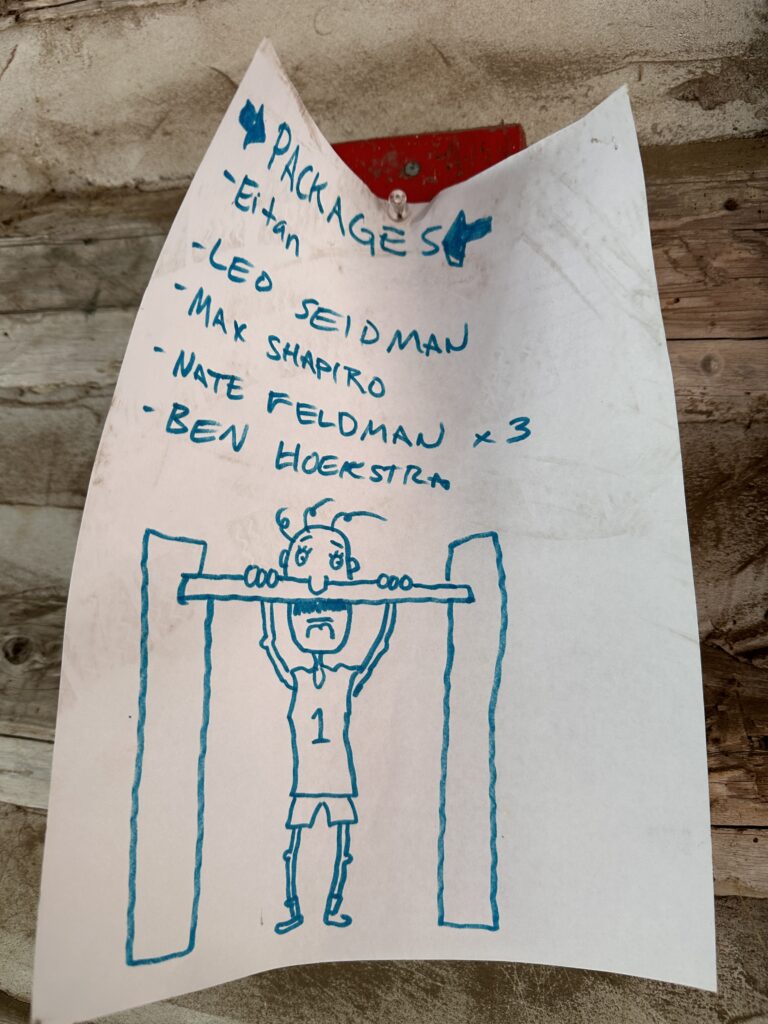 PACKAGES
- Eitan
- LEO SEIDMAN
- MAX SHAPIRO
- NATE FELDMAN x 3
- BEN HOEKSTRA
1